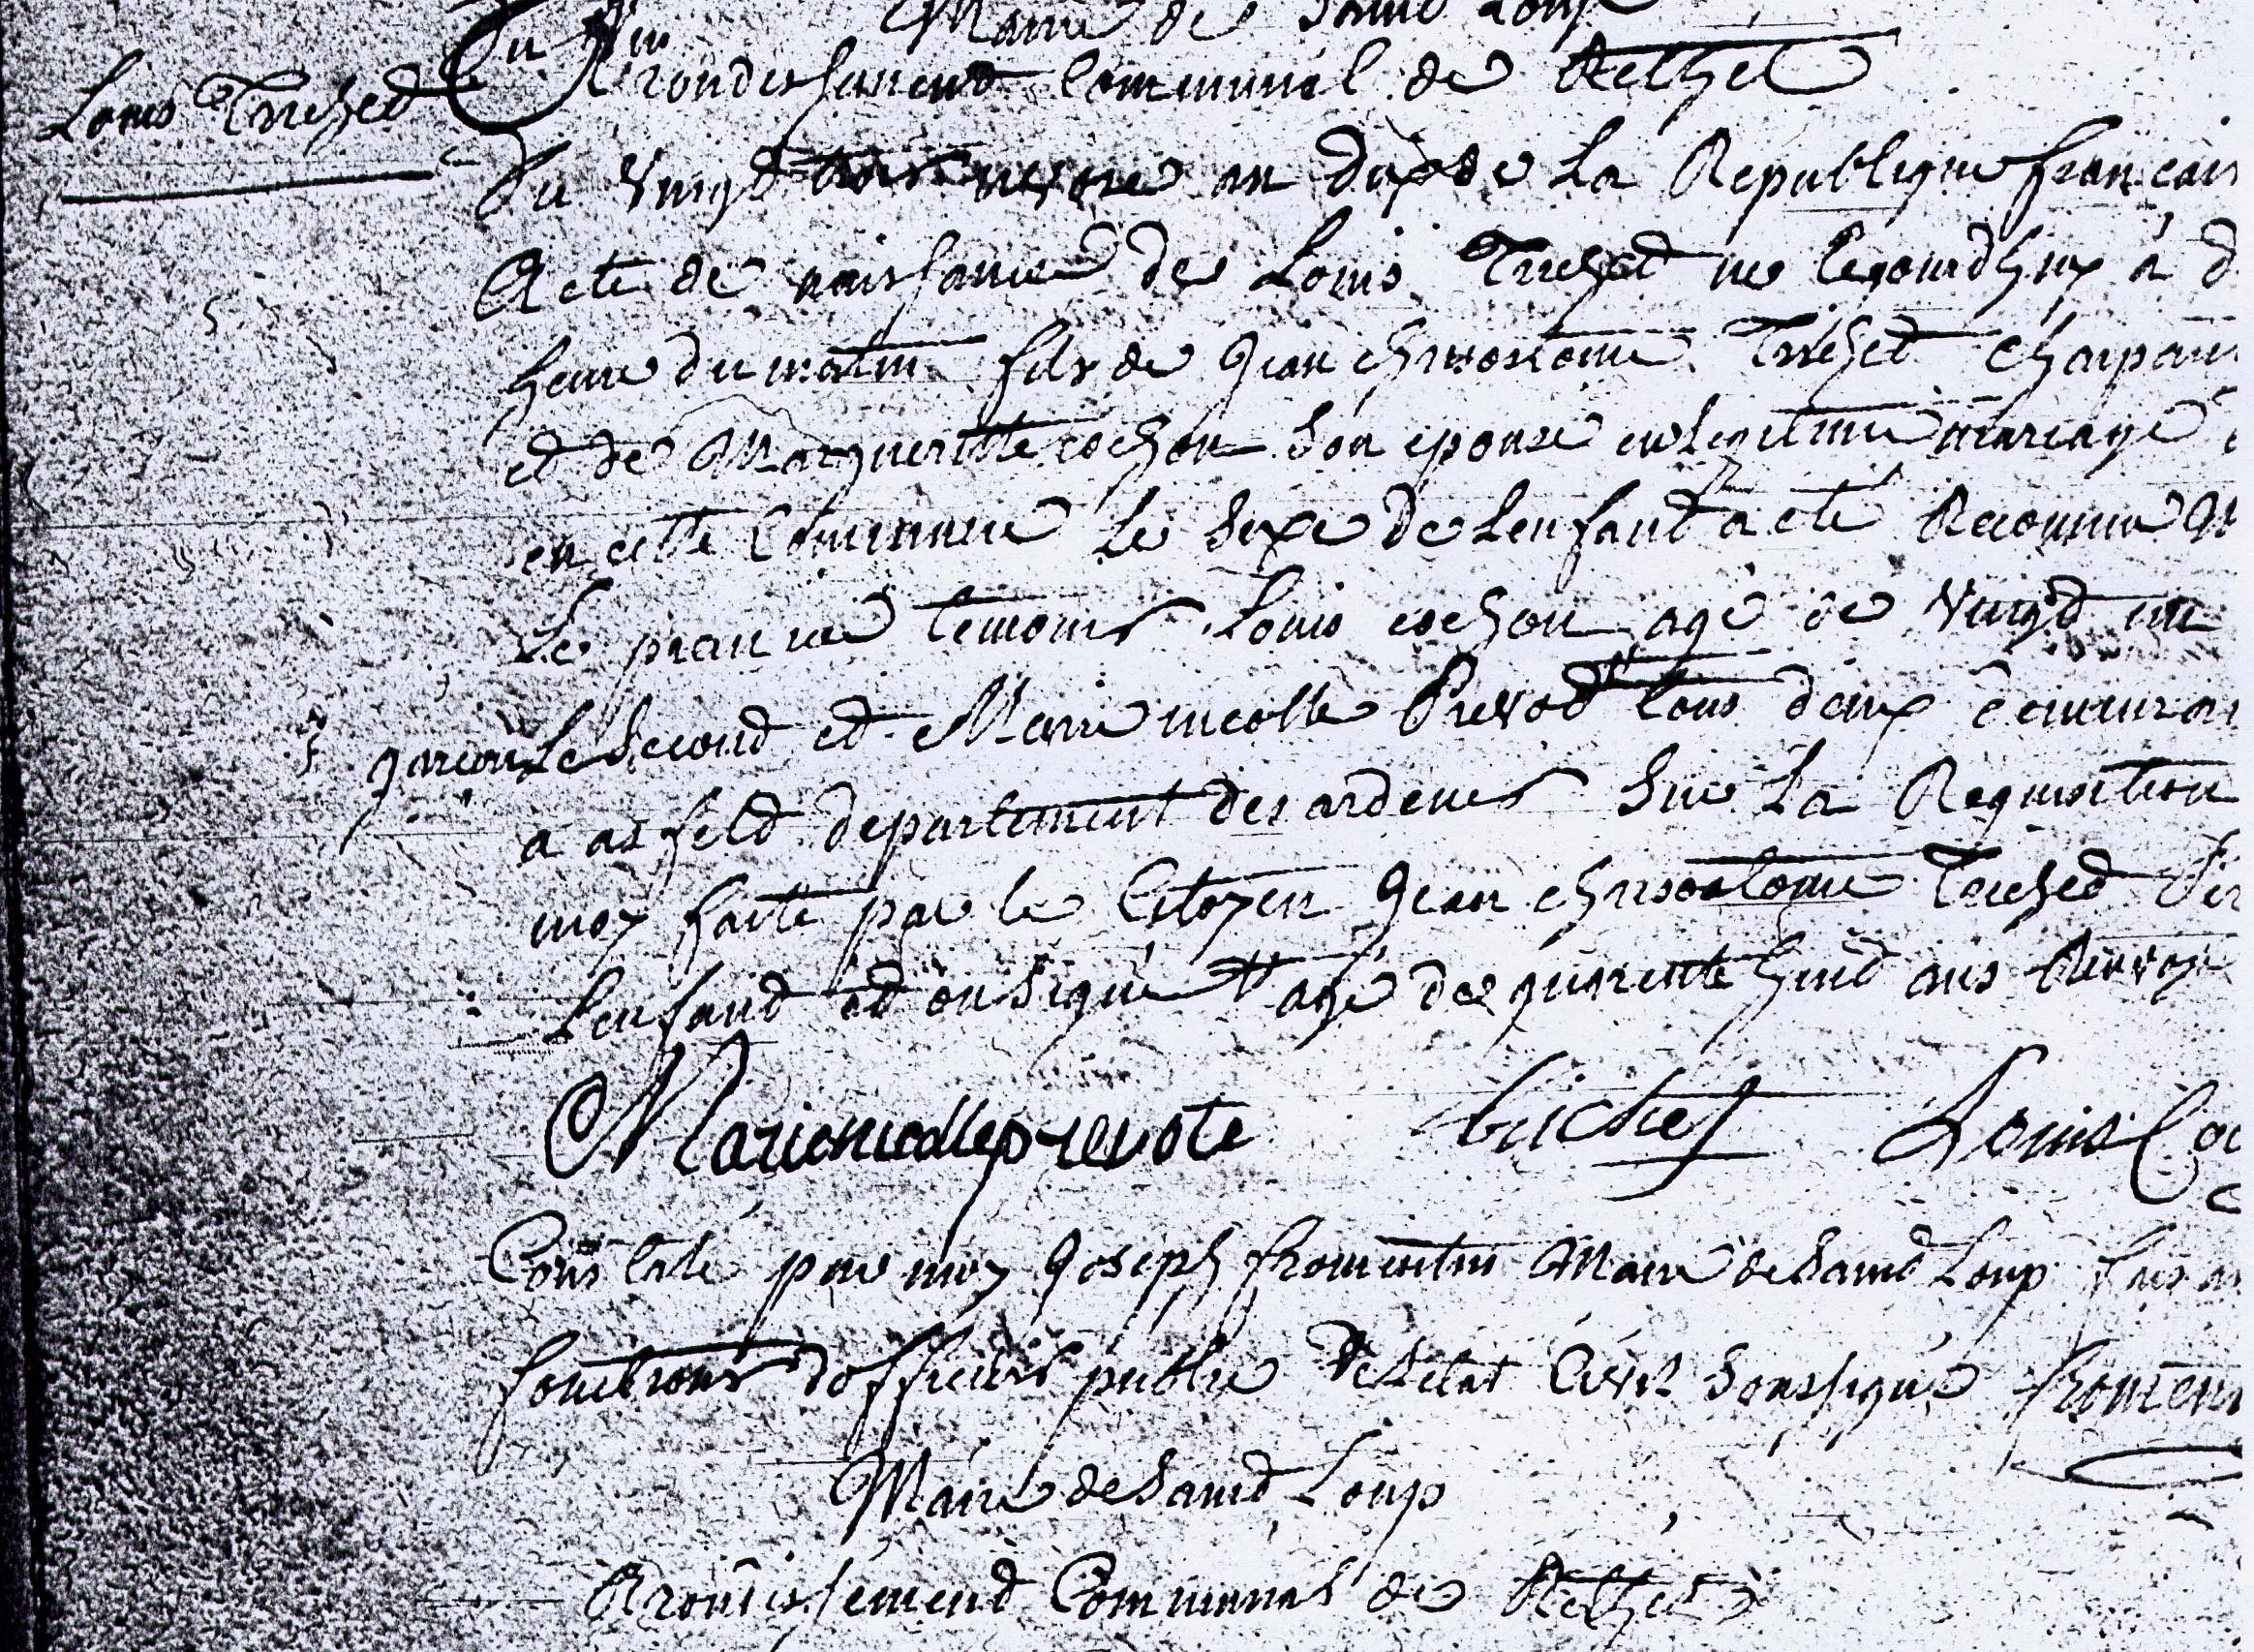 Mairie de Saind Loup
Louis Trichet
Arondissement Communal de Rethel
Du vingt trois nivose an dix de La Republique francais
Acte de naissance de Louis Trichet ne Cejourdhuy à d
heure du matin fils de Jean chrisostome Trichet charpan
et de Margueritte cochon Son epouse en legitime mariage
en cette Commune Le Sexe de Lenfant a eté Reconnu
Le premier temoins Louis cochon agé de vingd un
garcon Le Second et Marie nicolle Prevod tous deux demeuran
a asfeld departement des ardenes Sur La Requisition
moy faite par le Citoyen Jean chrisostome Trichet
Lenfand et on Signé agé de quarente huid ans
Marie nicolle prevote trichet Louis Coc
Constaté par moy Joseph fromentin Maire de Saind Loup
fonctions dofficiers public de Letat Civil Soussigné fromen
Maire de Saind Loup
Arondissemend Communal de Rethel